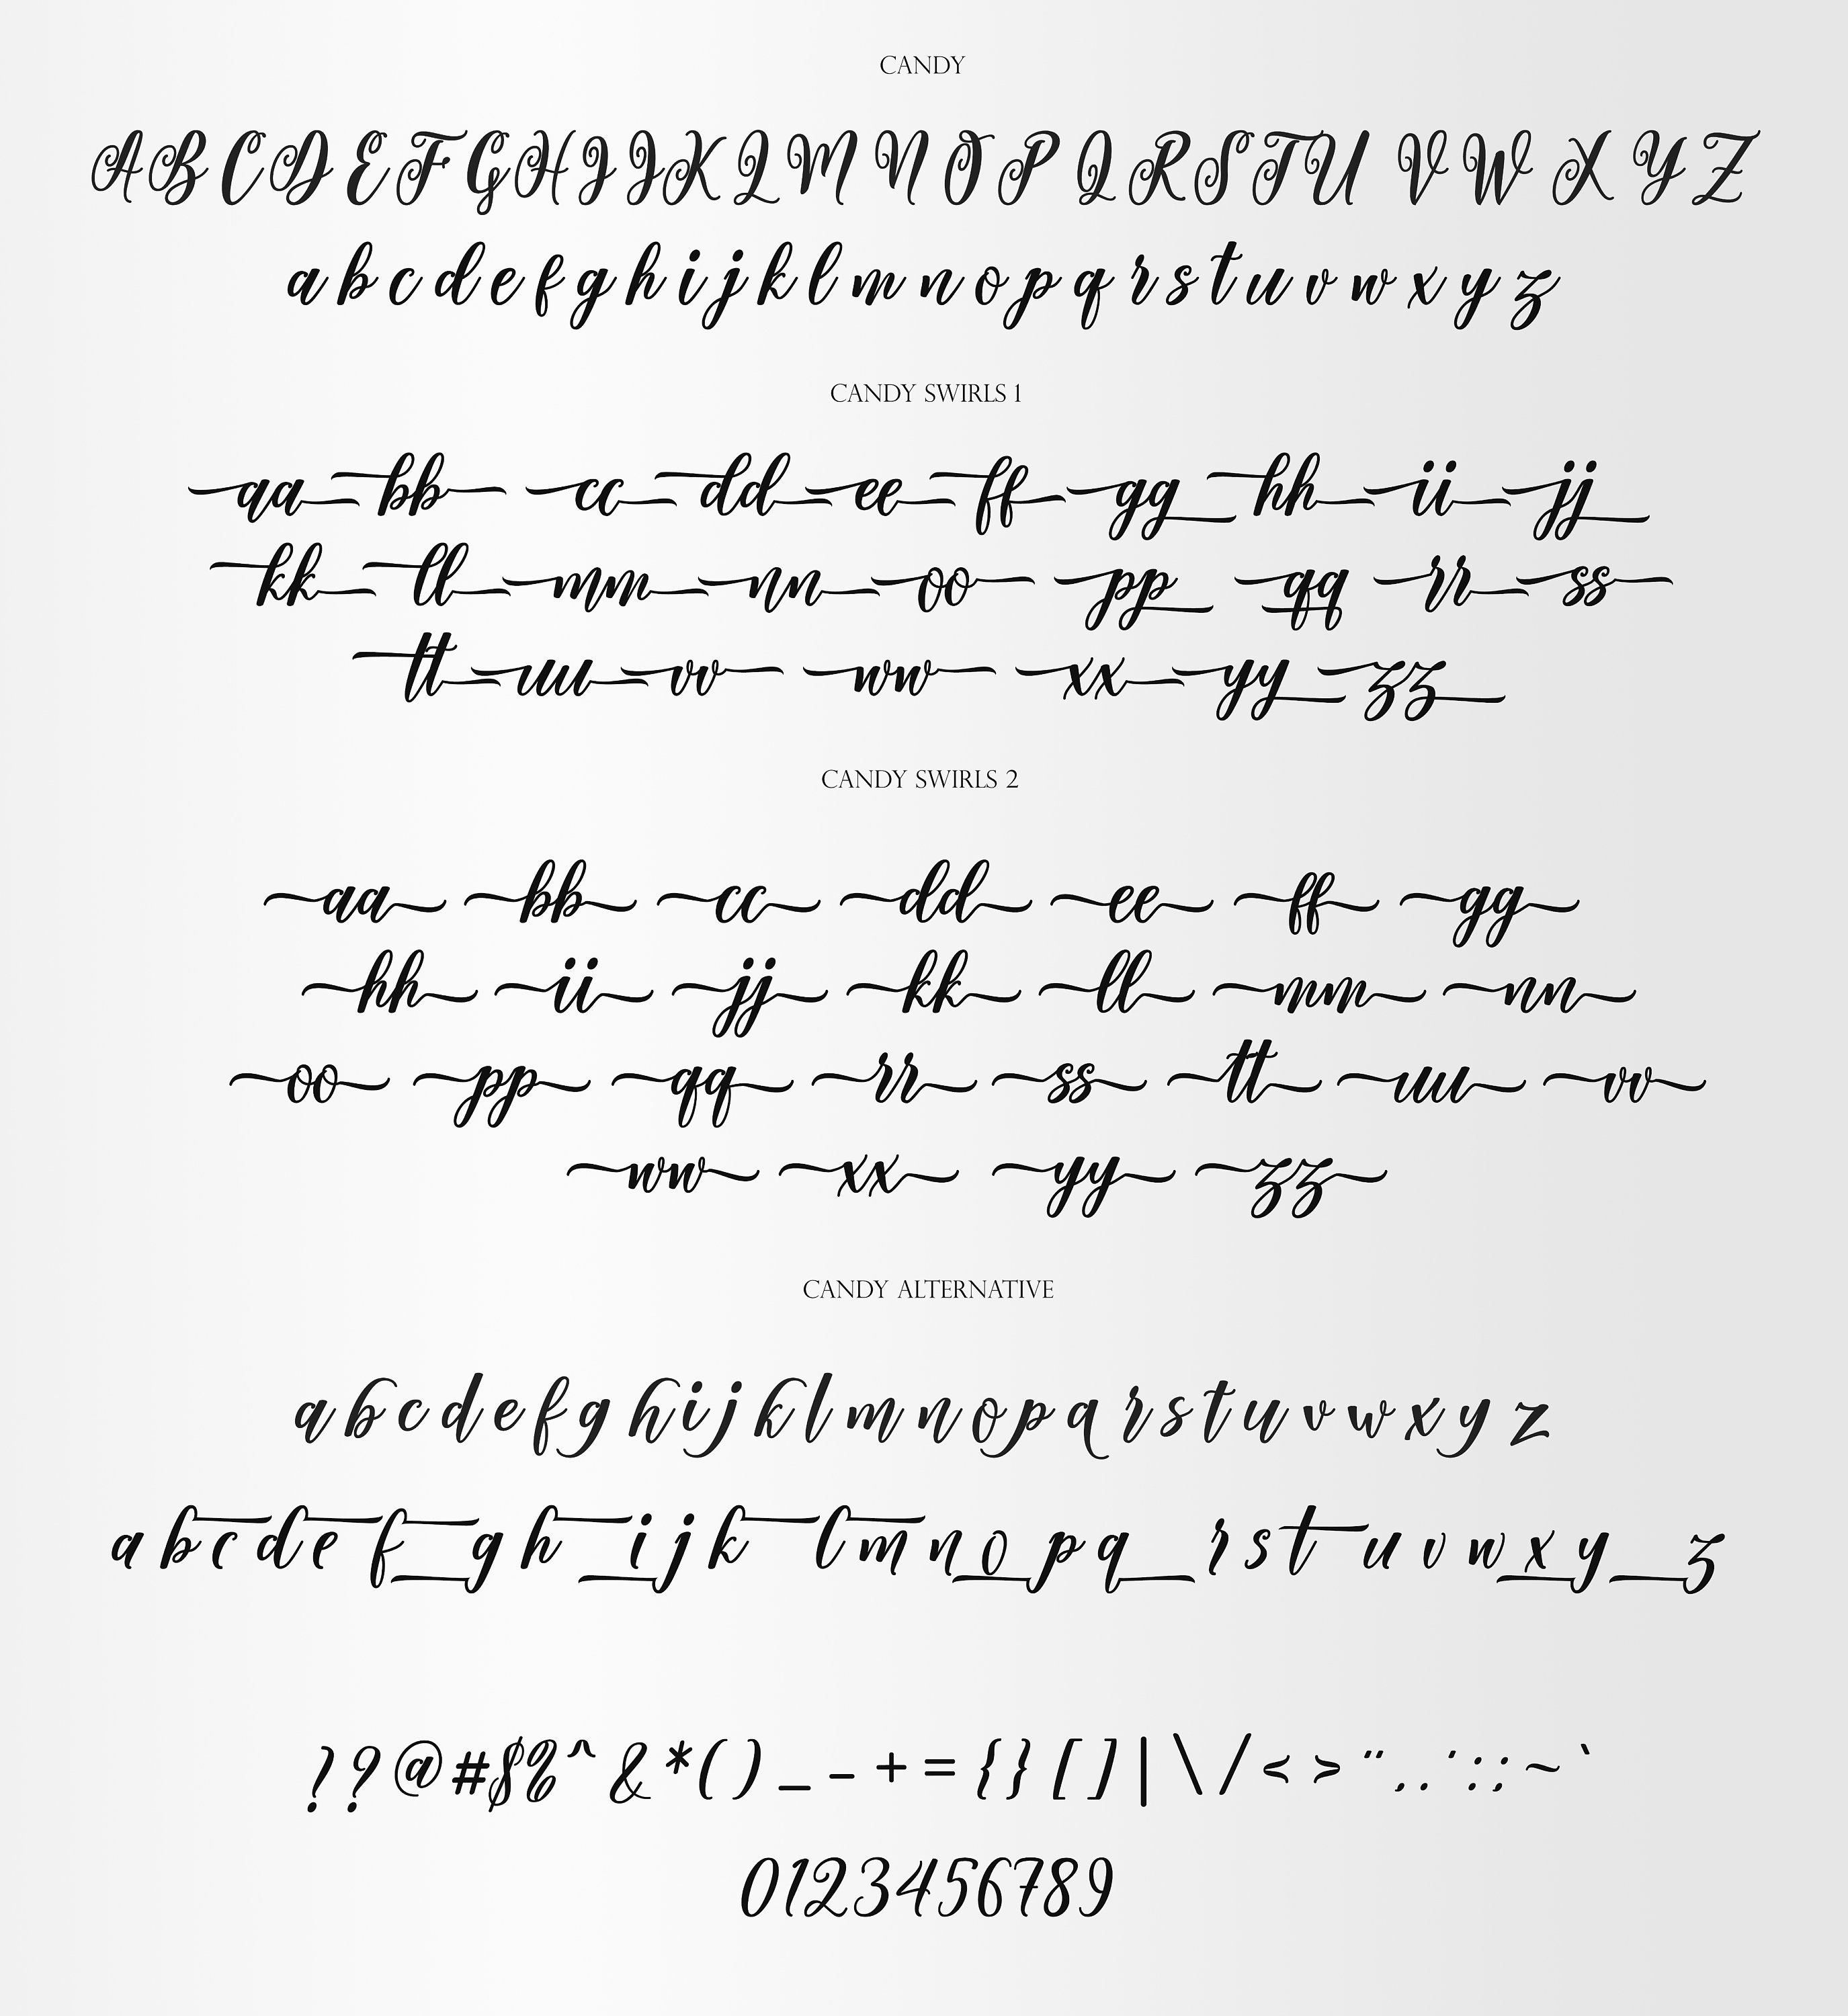 CANDY
A B C D E F G H I J K L M N O P Q R S T U V W X Y Z
a b c d e f g h i j k l m n o p q r s t u v w x y z
CANDY SWIRLS 1
aa bb cc dd ee ff gg hh ii jj
kk ll mm nn oo pp qq rr ss
tt uu vv ww xx yy zz
CANDY SWIRLS 2
aa bb cc dd ee ff gg
hh ii jj kk ll mm nn
oo pp qq rr ss tt uu vv
ww xx yy zz
CANDY ALTERNATIVE
a b c d e f g h i j k l m n o p q r s t u v w x y z
a b c d e f g h i j k l m n o p q r s t u v w x y z
! ? @ # $ % ^ & * ( ) _ - + = { } [ ] | \ / < > " , . ' : ; ~ `
0123456789